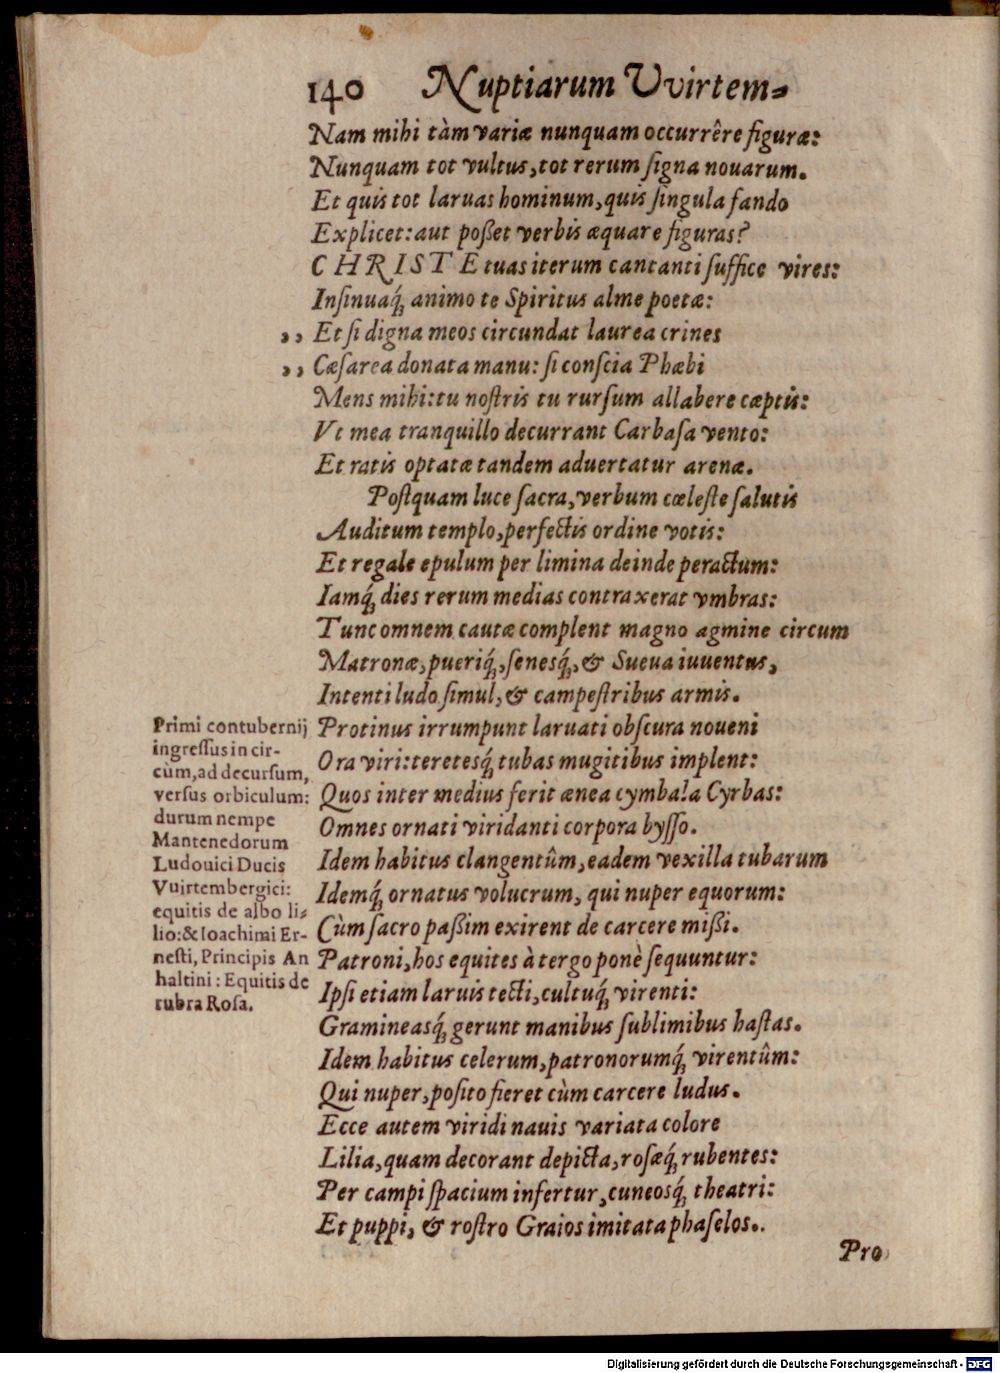 140 Nuptiarum Vvirtem-
Nam mihi tàm variæ nunquam occurrêre figuræ:
Nunquam tot vultus, tot rerum ſigna nouarum.
Et quis tot laruas hominum, quis ſingula fando
Explicet: aut poßet verbis æquare figuras?
CHRISTE tuas iterum cantanti ſuffice vires:
Inſinuaq́; animo te Spiritus alme poetæ:
,, Et ſi digna meos circundat laurea crines
,, Cæſarea donata manu: ſi conſcia Phæbi
Mens mihi: tu noſtris tu rurſum allabere cæptis:
Vt mea tranquillo decurrant Carbaſa vento:
Et ratis optatæ tandem aduertatur arenæ.
Poſtquam luce ſacra, verbum cæleſte ſalutis
Auditum templo, perfectis ordine votis:
Et regale epulum per limina deinde peractum:
Iamq́; dies rerum medias contraxerat vmbras:
Tunc omnem cautæ complent magno agmine circum
Matronæ, pueriq́;, ſenesq́;, & Sueua iuuentus,
Intenti ludo ſimul, & campeſtribus armis.
Protinus irrumpunt laruati obſcura noueni
Ora viri: teretesq́; tubas mugitibus implent:
Quos inter medius ferit ænea cymbala Cyrbas:
Omnes ornati viridanti corpora byſſo.
Idem habitus clangentûm, eadem vexilla tubarum
Idemq́; ornatus volucrum, qui nuper equorum:
Cùm ſacro paßim exirent de carcere mißi.
Patroni, hos equites à tergo ponè ſequuntur:
Ipſi etiam laruis tecti, cultuq́; virenti:
Gramineasq́; gerunt manibus ſublimibus haſtas.
Idem habitus celerum, patronorumq́; virentûm:
Qui nuper, poſito fieret cùm carcere ludus.
Ecce autem viridi nauis variata colore
Lilia, quam decorant depicta, roſæq́; rubentes:
Per campi ſpacium infertur, cuneosq́; theatri:
Et puppi, & roſtro Graios imitata phaſelos.
Pro
Primi contubernij
ingreſſus in cir-
cùm, ad decurſum,
verſus orbiculum:
durum nempe
Mantenedorum
Ludouici Ducis
Vuirtembergici:
equitis de albo li-
lio: & Ioachimi Er-
neſti, Principis An
haltini: Equitis de
rubra Roſa.
Digitalisierung gefördert durch die Deutsche Forschungsgemeinschaft - DFG